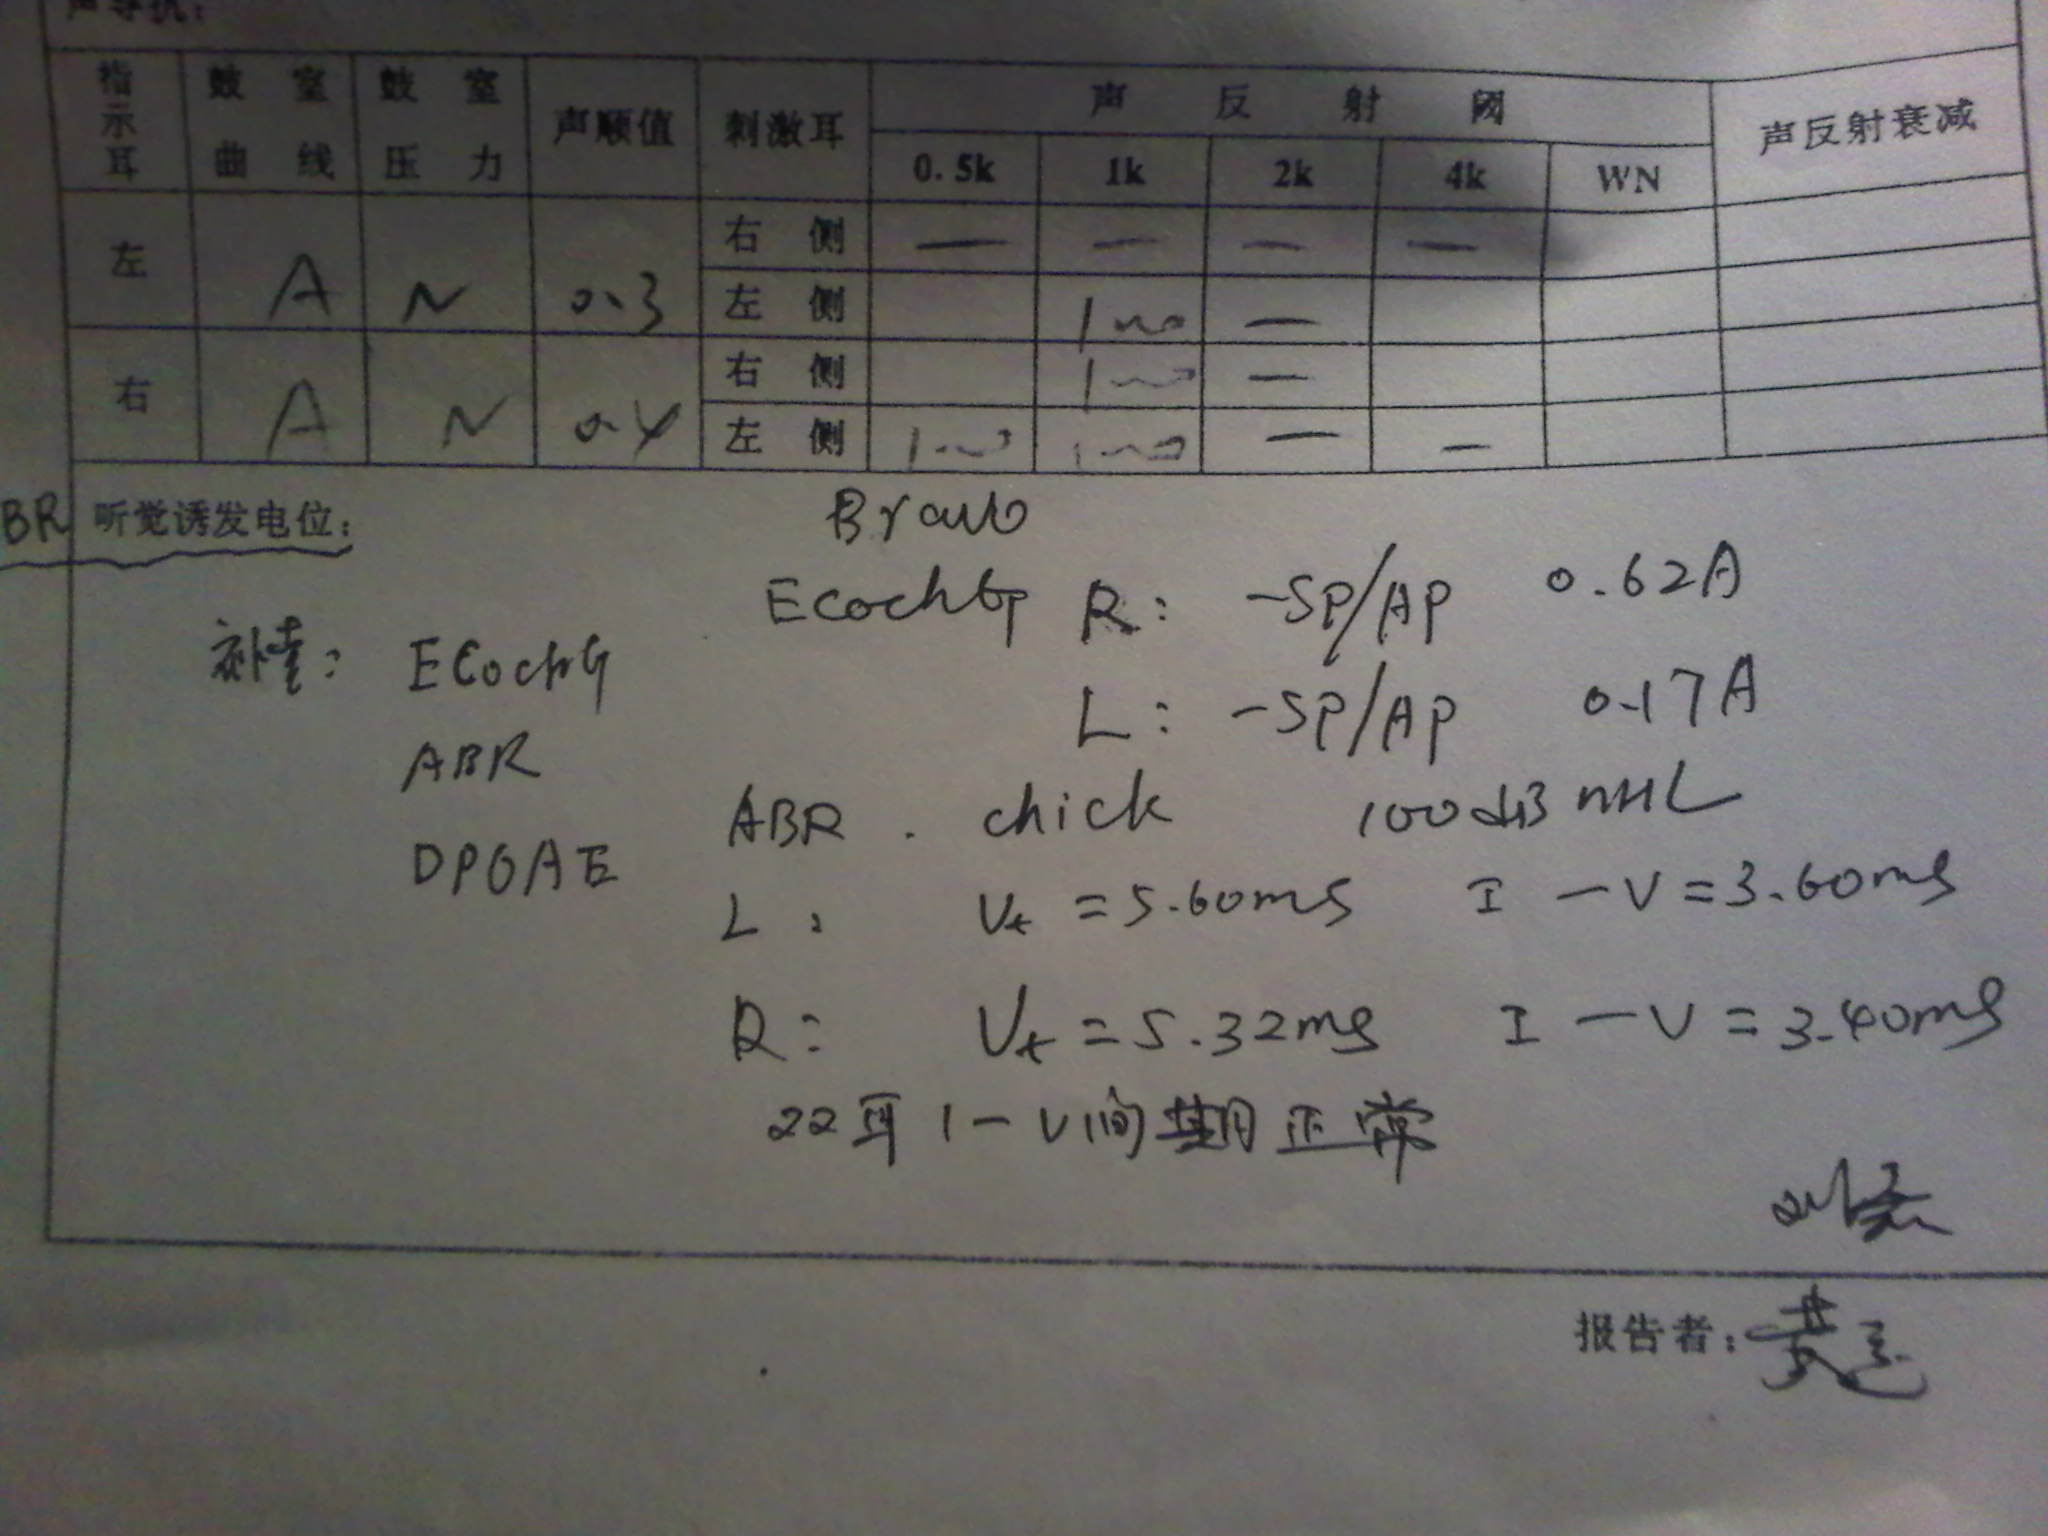 声导抗:
指示耳 鼓室曲线 鼓室压力 声顺值 刺激耳 声反射阈 声反射衰减
0.5k 1k 2k 4k WN
左 A N 0.3 右侧 — — — —
左侧 100 —
右 A N 0.4 右侧 100 —
左侧 100 100 — —
BR 听觉诱发电位:
Bravo
EcochG R: -SP/AP 0.62A
补查: ECochG
L: -SP/AP 0.17A
ABR
ABR. chick 100dB nHL
DPOAE
L: V+ =5.60ms I —V=3.60ms
R: V+ =5.32ms I —V=3.40ms
22耳 I—V间期正常
报告者: